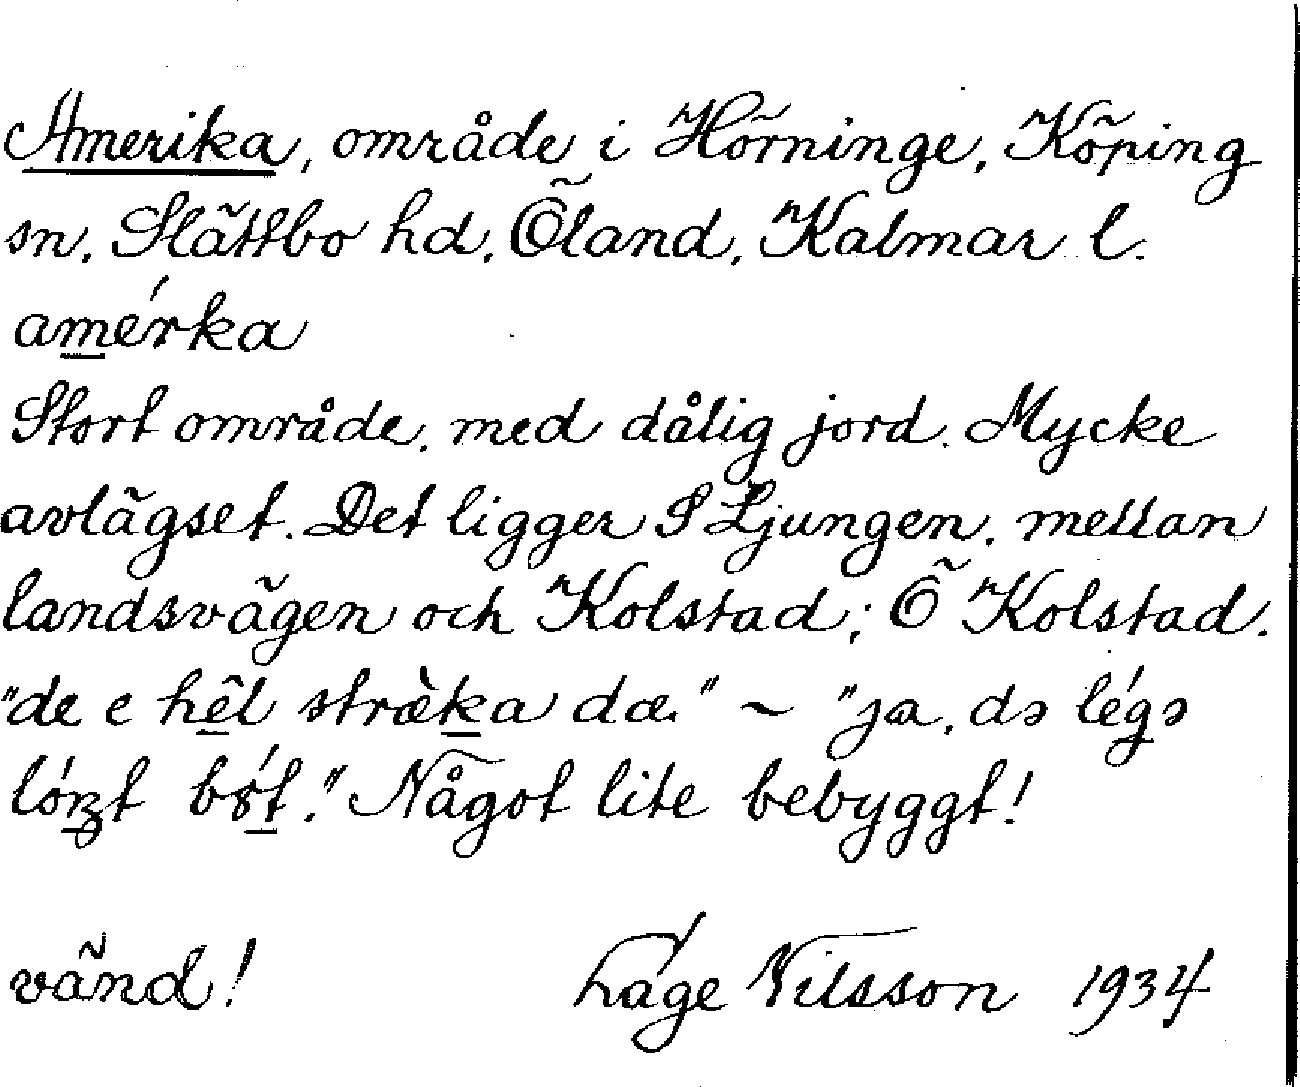 Amerika, område i Hörninge, Köping
sn, Slättbo hd, Öland, Kalmar l.
amérka
Stort område, med dålig jord. Mycke
avlägset. Det ligger I Ljungen, mellan
landsvägen och Kolstad; Ö Kolstad.
"de e hêl stræ̀ka dæ." ~ "ja, də légə
lóŋt bót." Något lite bebyggt!
vänd! Låge Nilsson 1934